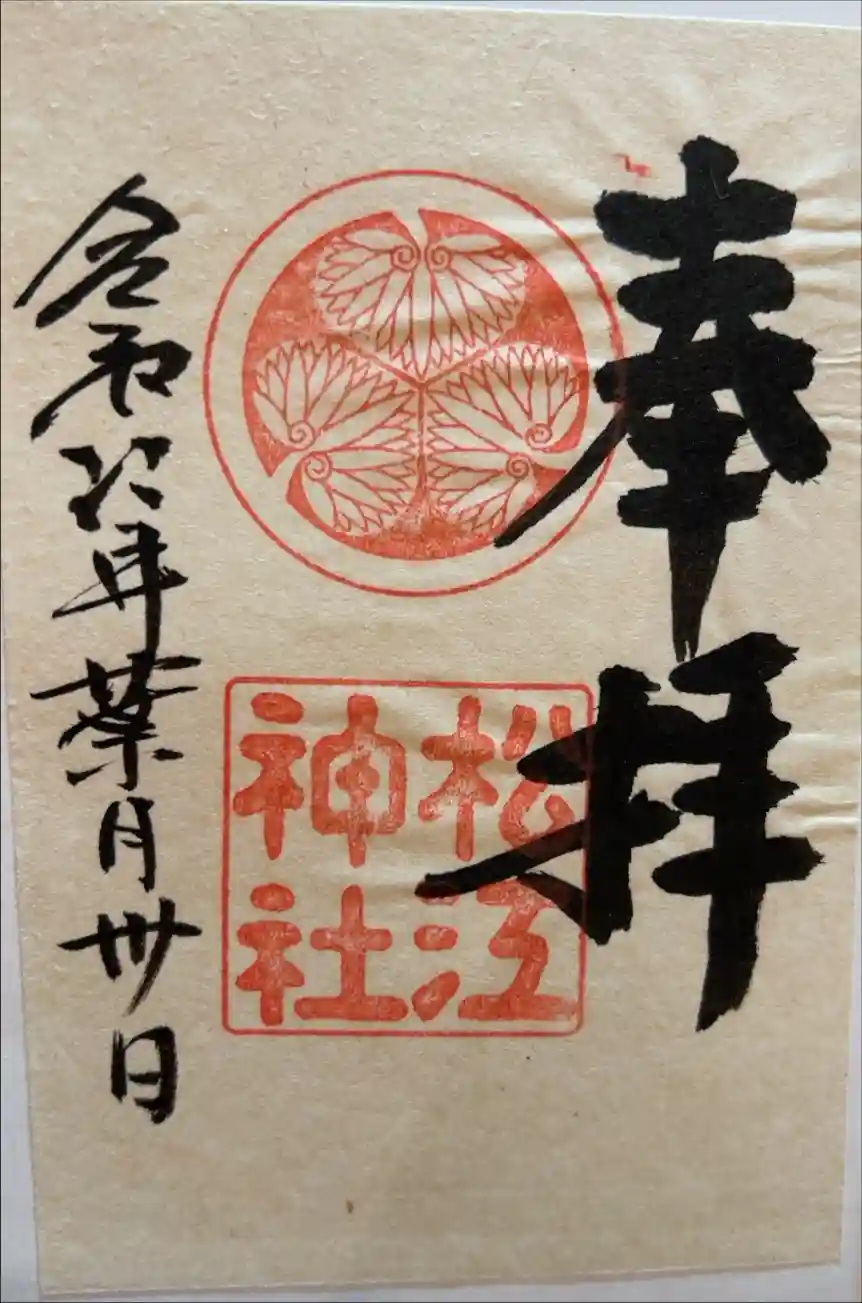 奉拝
松江
神社
令和 年葉月卅日